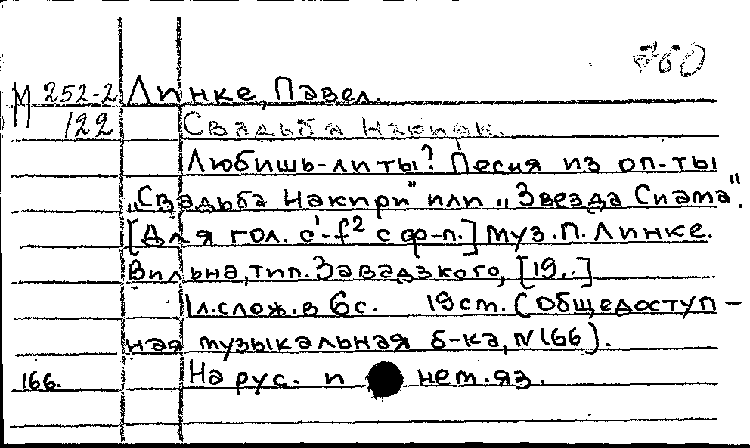 760
М 252-2 Линке, Павел.
122 Свадьба Накири.
Любишь-ли ты? Песня из оп-ты
„Свадьба Накири" или „Звезда Сиама".
[Для гол. c'-f² с ф-п.] Муз. П. Линке.
Вильна, тип. Завадзкого, [19..]
1л. слож. в 6с. 19 cm. (Общедоступ-
ная музыкальная б-ка, N 166).
166. На рус. и нем. яз.